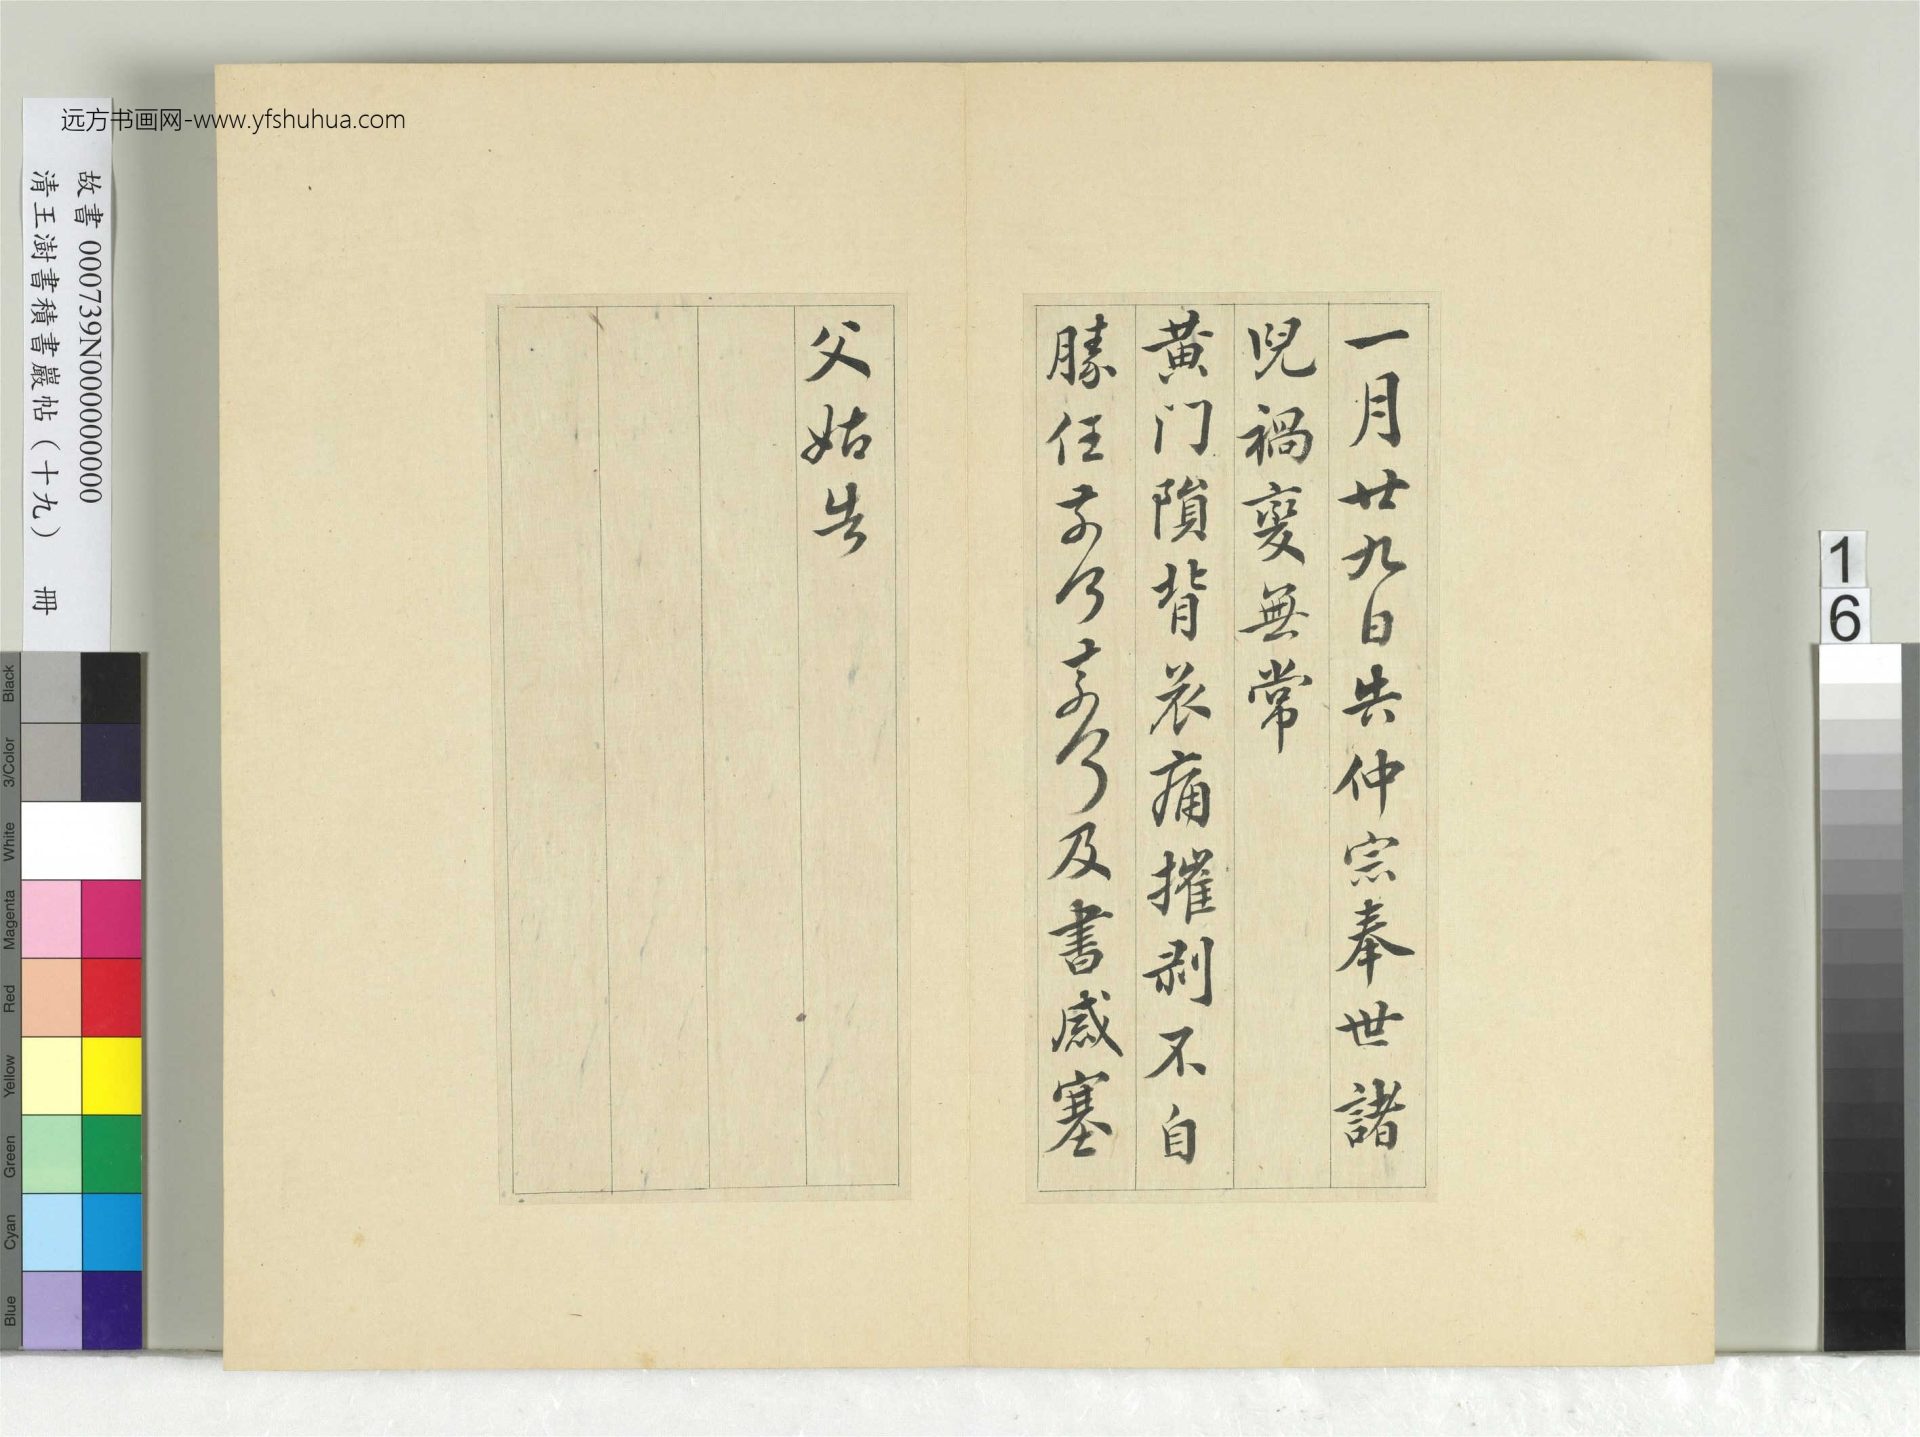 远方书画网-www.yfshuhua.com
故書 000739N000000000
清王澍書積書巖帖（十九） 冊
一月廿九日告仲宗奉世諸
兒禍變無常
黄门隕背哀痛摧剥不自
勝任奈何奈何及書感塞
父姑告
Black
3/Color
White
Magenta
Red
Yellow
Green
Cyan
Blue
1
6